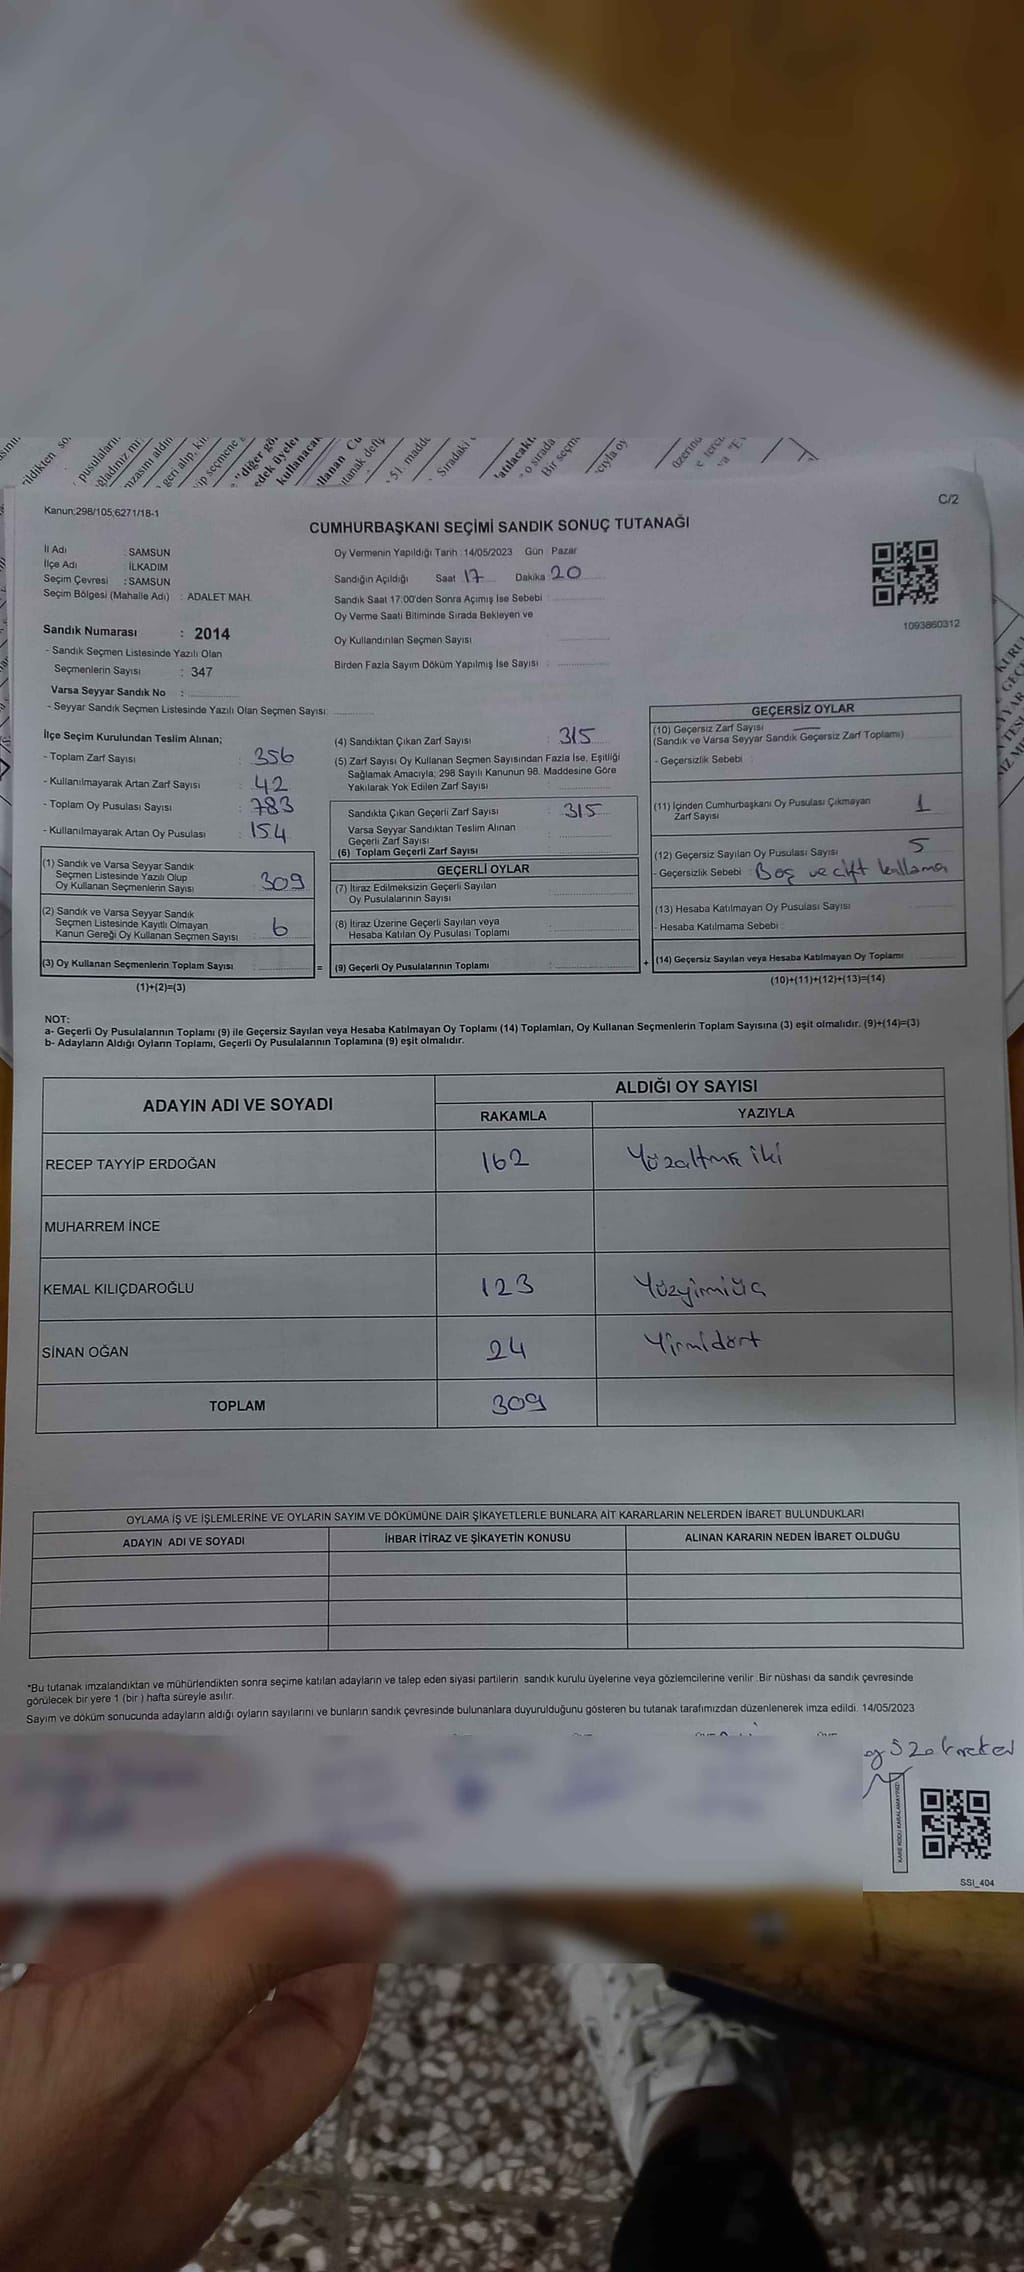 C/2
Kanun;298/105,6271/18-1
CUMHURBAŞKANI SEÇİMİ SANDIK SONUÇ TUTANAĞI
İl Adı : SAMSUN
İlçe Adı : İLKADIM
Seçim Çevresi : SAMSUN
Seçim Bölgesi (Mahalle Adı) : ADALET MAH.
Sandık Numarası : 2014
- Sandık Seçmen Listesinde Yazılı Olan
Seçmenlerin Sayısı : 347
Varsa Seyyar Sandık No :
- Seyyar Sandık Seçmen Listesinde Yazılı Olan Seçmen Sayısı:
Oy Vermenin Yapıldığı Tarih :14/05/2023 Gün : Pazar
Sandığın Açıldığı Saat 17 Dakika : 20
Sandık Saat 17:00'den Sonra Açımış İse Sebebi :
Oy Verme Saati Bitiminde Sırada Bekleyen ve
Oy Kullandırılan Seçmen Sayısı
Birden Fazla Sayım Döküm Yapılmış İse Sayısı :
1093860312
İlçe Seçim Kurulundan Teslim Alınan;
- Toplam Zarf Sayısı : 356
- Kullanılmayarak Artan Zarf Sayısı : 42
- Toplam Oy Pusulası Sayısı : 783
- Kullanılmayarak Artan Oy Pusulası : 154
(1) Sandık ve Varsa Seyyar Sandık
Seçmen Listesinde Yazılı Olup
Oy Kullanan Seçmenlerin Sayısı : 309
(2) Sandık ve Varsa Seyyar Sandık
Seçmen Listesinde Kayıtlı Olmayan
Kanun Gereği Oy Kullanan Seçmen Sayısı : 6
(3) Oy Kullanan Seçmenlerin Toplam Sayısı :
(1)+(2)=(3)
(4) Sandıktan Çıkan Zarf Sayısı : 315
(5) Zarf Sayısı Oy Kullanan Seçmen Sayısından Fazla İse, Eşitliği
Sağlamak Amacıyla; 298 Sayılı Kanunun 98. Maddesine Göre
Yakılarak Yok Edilen Zarf Sayısı :
Sandıkta Çıkan Geçerli Zarf Sayısı : 315
Varsa Seyyar Sandıktan Teslim Alınan
Geçerli Zarf Sayısı :
(6) Toplam Geçerli Zarf Sayısı :
GEÇERLİ OYLAR
(7) İtiraz Edilmeksizin Geçerli Sayılan
Oy Pusulalarının Sayısı :
(8) İtiraz Üzerine Geçerli Sayılan veya
Hesaba Katılan Oy Pusulası Toplamı :
= (9) Geçerli Oy Pusulalarının Toplamı :
GEÇERSİZ OYLAR
(10) Geçersiz Zarf Sayısı
(Sandık ve Varsa Seyyar Sandık Geçersiz Zarf Toplamı)
- Geçersizlik Sebebi :
(11) İçinden Cumhurbaşkanı Oy Pusulası Çıkmayan
Zarf Sayısı 1
(12) Geçersiz Sayılan Oy Pusulası Sayısı 5
- Geçersizlik Sebebi : Boş ve çift kullama
(13) Hesaba Katılmayan Oy Pusulası Sayısı
- Hesaba Katılmama Sebebi :
+ (14) Geçersiz Sayılan veya Hesaba Katılmayan Oy Toplamı
(10)+(11)+(12)+(13)=(14)
NOT:
a- Geçerli Oy Pusulalarının Toplamı (9) ile Geçersiz Sayılan veya Hesaba Katılmayan Oy Toplamı (14) Toplamları, Oy Kullanan Seçmenlerin Toplam Sayısına (3) eşit olmalıdır. (9)+(14)=(3)
b- Adayların Aldığı Oyların Toplamı, Geçerli Oy Pusulalarının Toplamına (9) eşit olmalıdır.
ADAYIN ADI VE SOYADI ALDIĞI OY SAYISI
RAKAMLA YAZIYLA
RECEP TAYYİP ERDOĞAN 162 Yüzaltmış iki
MUHARREM İNCE
KEMAL KILIÇDAROĞLU 123 Yüzyirmiüç
SİNAN OĞAN 24 Yirmidört
TOPLAM 309
OYLAMA İŞ VE İŞLEMLERİNE VE OYLARIN SAYIM VE DÖKÜMÜNE DAİR ŞİKAYETLERLE BUNLARA AİT KARARLARIN NELERDEN İBARET BULUNDUKLARI
ADAYIN ADI VE SOYADI İHBAR İTİRAZ VE ŞİKAYETİN KONUSU ALINAN KARARIN NEDEN İBARET OLDUĞU
*Bu tutanak imzalandıktan ve mühürlendikten sonra seçime katılan adayların ve talep eden siyasi partilerin sandık kurulu üyelerine veya gözlemcilerine verilir .Bir nüshası da sandık çevresinde
görülecek bir yere 1 (bir ) hafta süreyle asılır.
Sayım ve döküm sonucunda adayların aldığı oyların sayılarını ve bunların sandık çevresinde bulunanlara duyurulduğunu gösteren bu tutanak tarafımızdan düzenlenerek imza edildi. 14/05/2023
KARE KODU KARALAMAYINIZ!
SSI_404